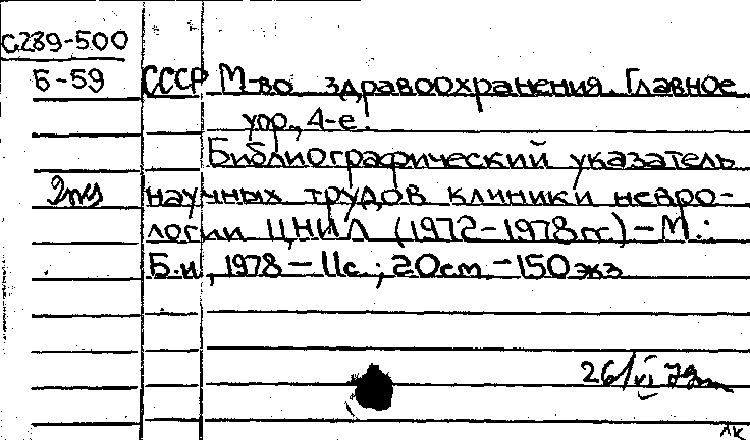 С289-500
Б-59 СССР М-во здравоохранения. Главное
упр., 4-е.
Библиографический указатель
2экз научных трудов клиники невро-
логии ЦНИЛ (1972-1978гг.) – М.:
Б.и, 1978 – 11с.; 20см. – 150экз
26/VI 79
ЛК